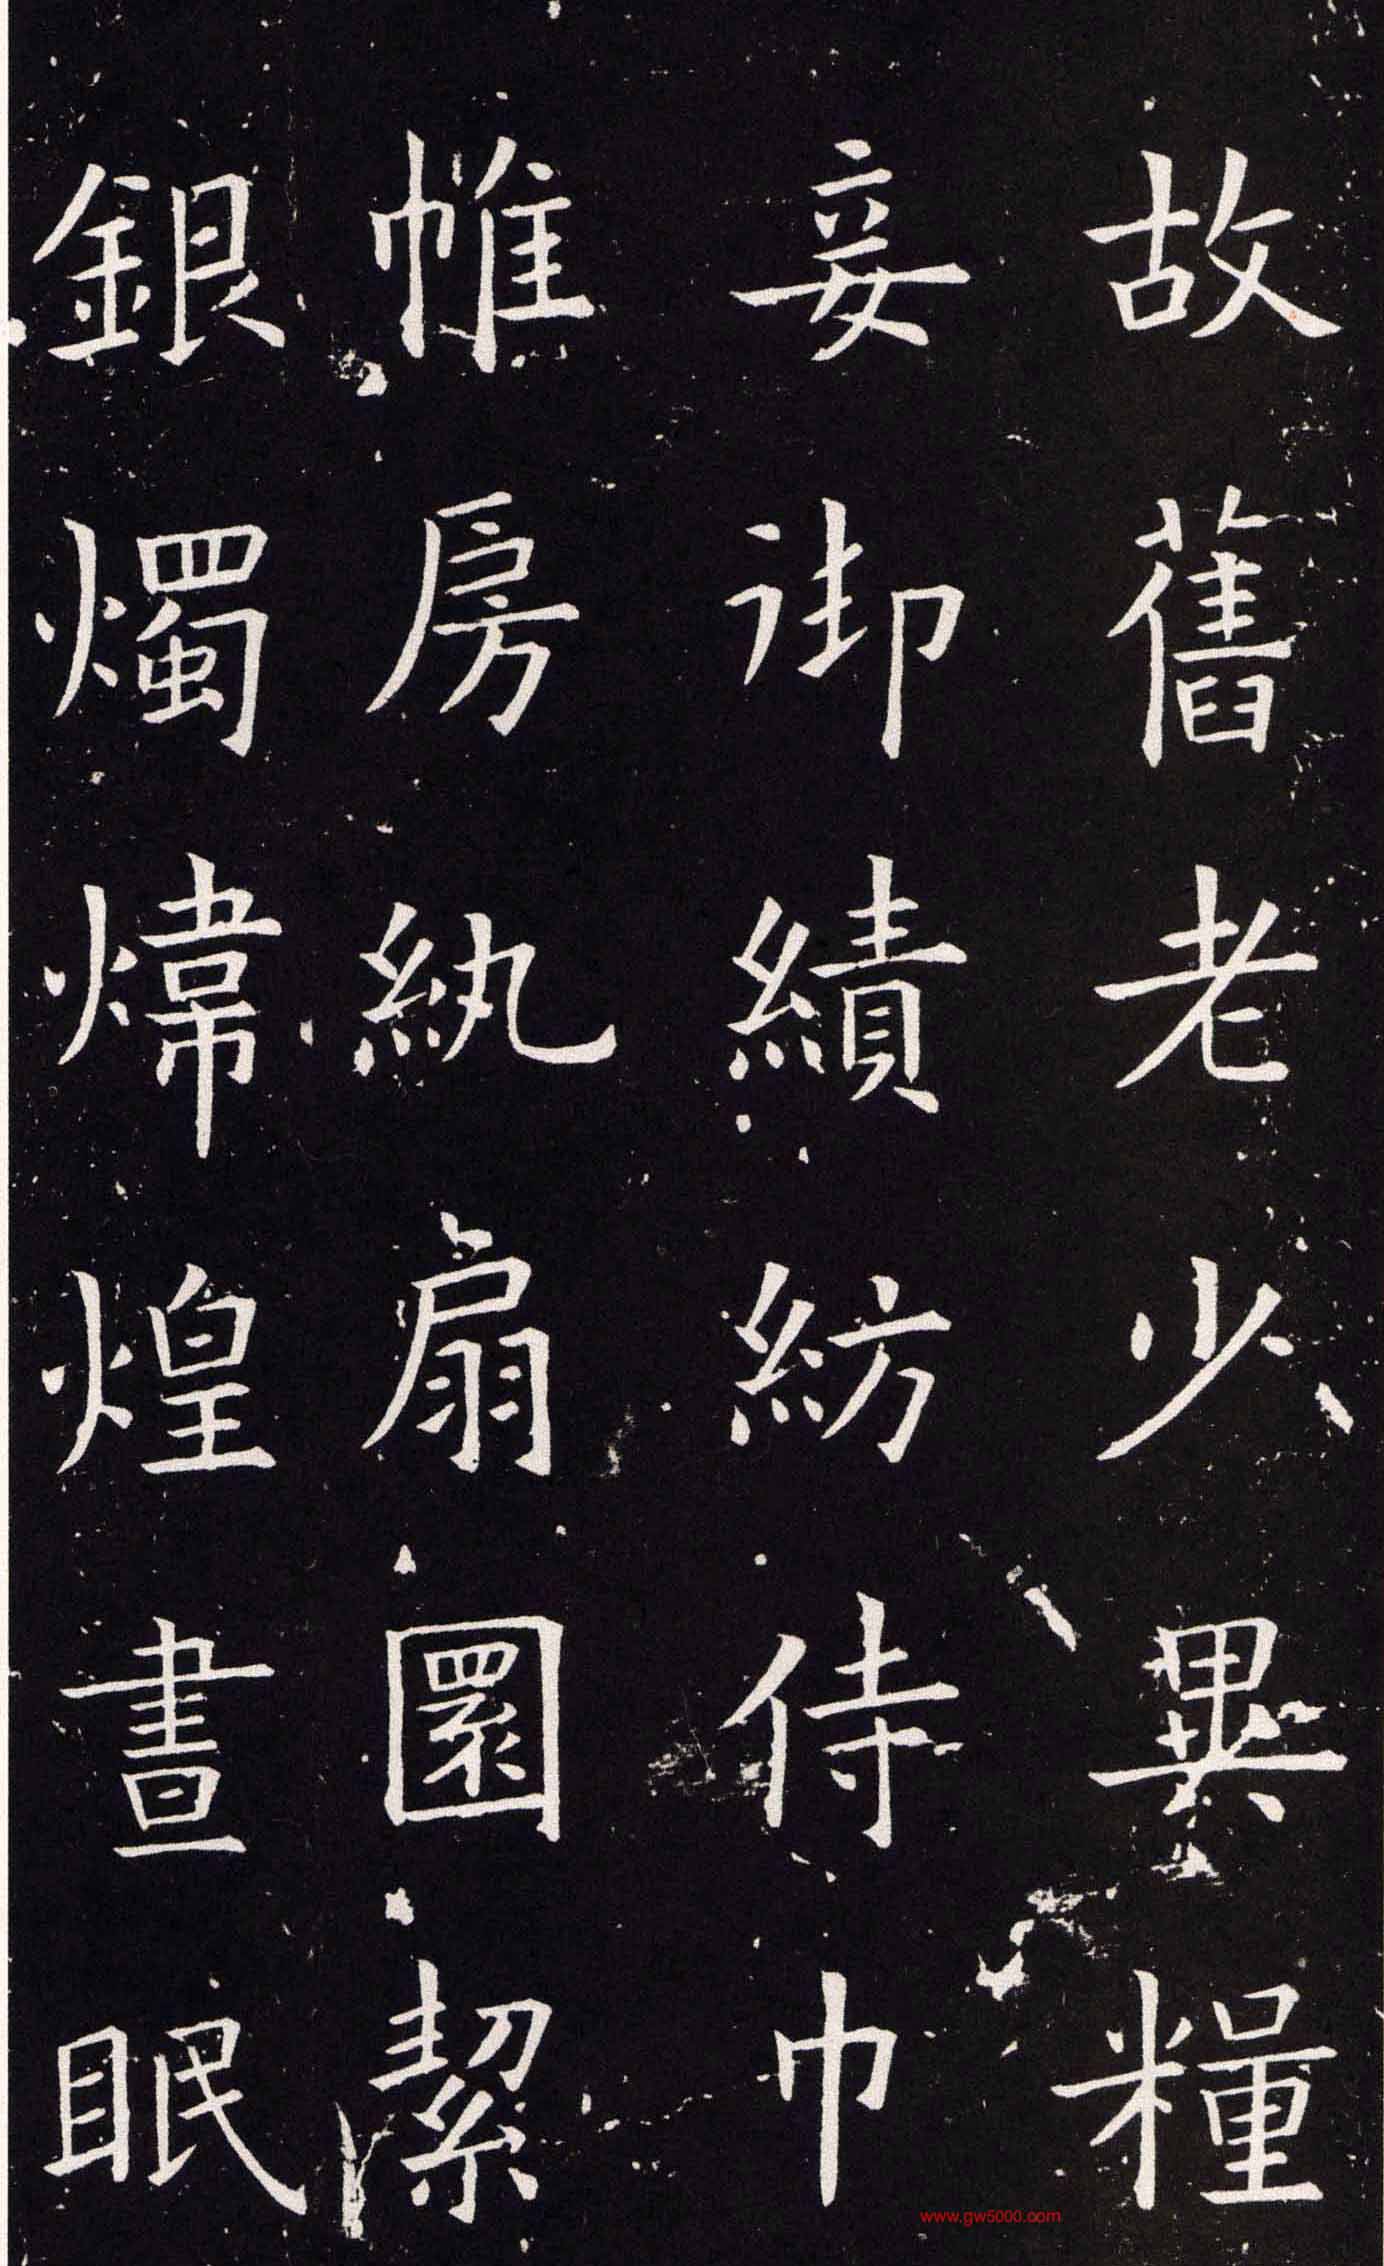 故舊老少異糧
妾御績紡侍巾
帷房紈扇圜絜
銀燭煒煌晝眠
www.gw5000.com